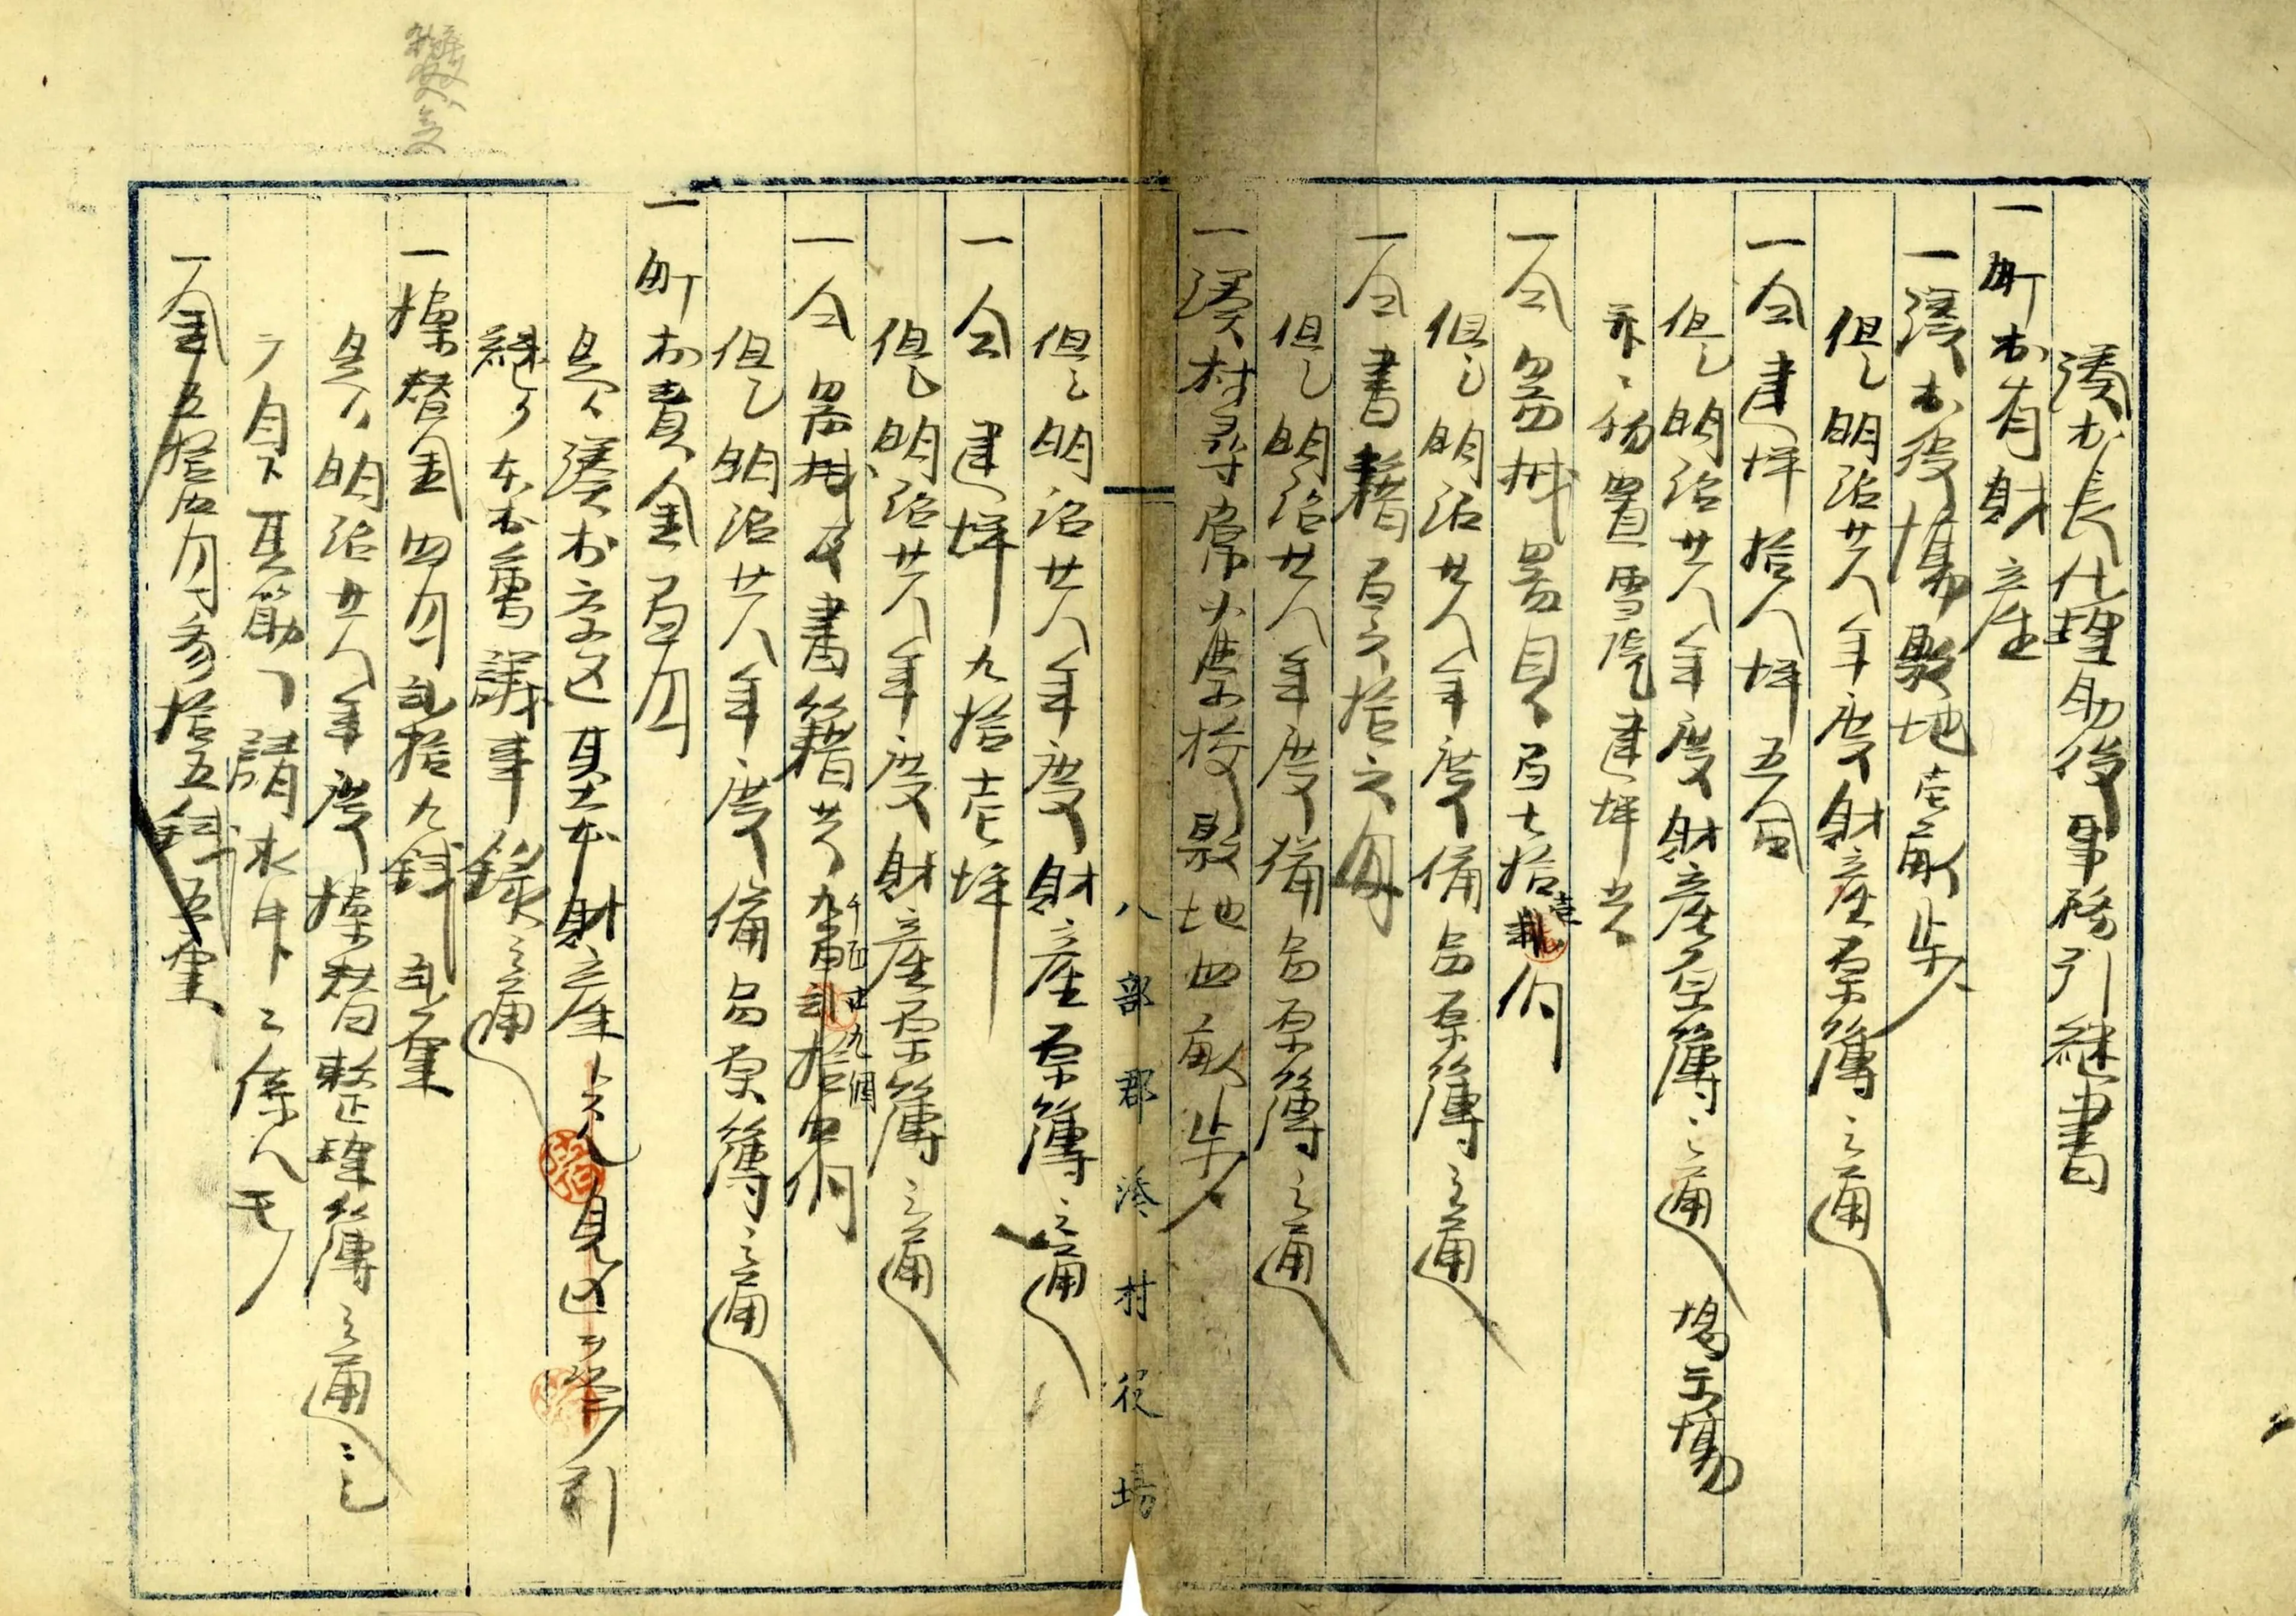 湊村長代理助役事務引継書
一町村有財産
一湊村役場敷地壱畝歩
但シ明治廿八年度財産原簿之通
一仝建坪拾八坪五合
但シ明治廿八年度財産原簿之通 掲示場
并ニ物置雪隠建坪共
一仝器械器具百七拾壱個
但シ明治廿八年度備品原簿之通
一仝書籍百六拾六冊
但シ明治廿八年度備品原簿之通
一湊村尋常小学校敷地四畝歩
八部郡湊村役場
但シ明治廿八年度財産原簿之通
一仝建坪九拾壱坪
但シ明治廿八年度財産原簿之通
一仝器械及書籍共
千四廿九個
但シ明治廿八年度備品原簿之通
一町村費金百円
是ハ湊村字区基本財産
引
継タ本村会議事録之通
一操替金四円弐拾九銭弐厘
是ハ明治廿八年度操替整理簿之通ニシ
テ目下其筋ヘ請求中ニ係ルモノ
一金五拾四円参拾五銭五厘